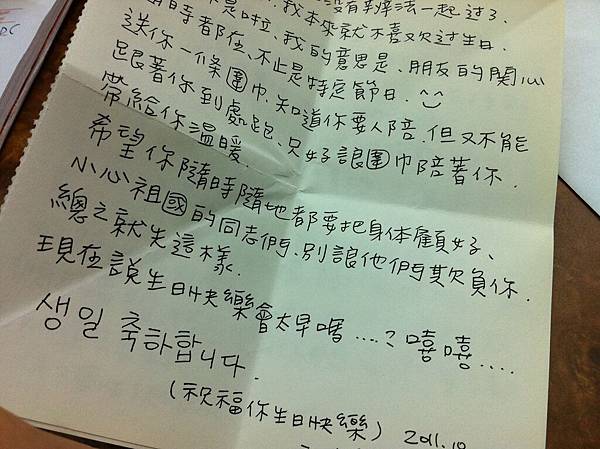 沒有辦法一起过了、
不是啦、我本來就不喜欢过生日、
隨時都在、不止是特定節日.
我的意思是、朋友的関心
送你一條圍巾、知道你要人陪、但又不能
跟著你到處跑、只好讓圍巾陪著你、
帶給你溫暖.
希望你隨時隨地都要把身体顧好、
小心祖國的同志們、別讓他們欺負你.
總之就先這樣.
現在説生日快樂會太早嗎....?嘻嘻.....
생일 축하합니다.
(祝福你生日快樂) 2011.10